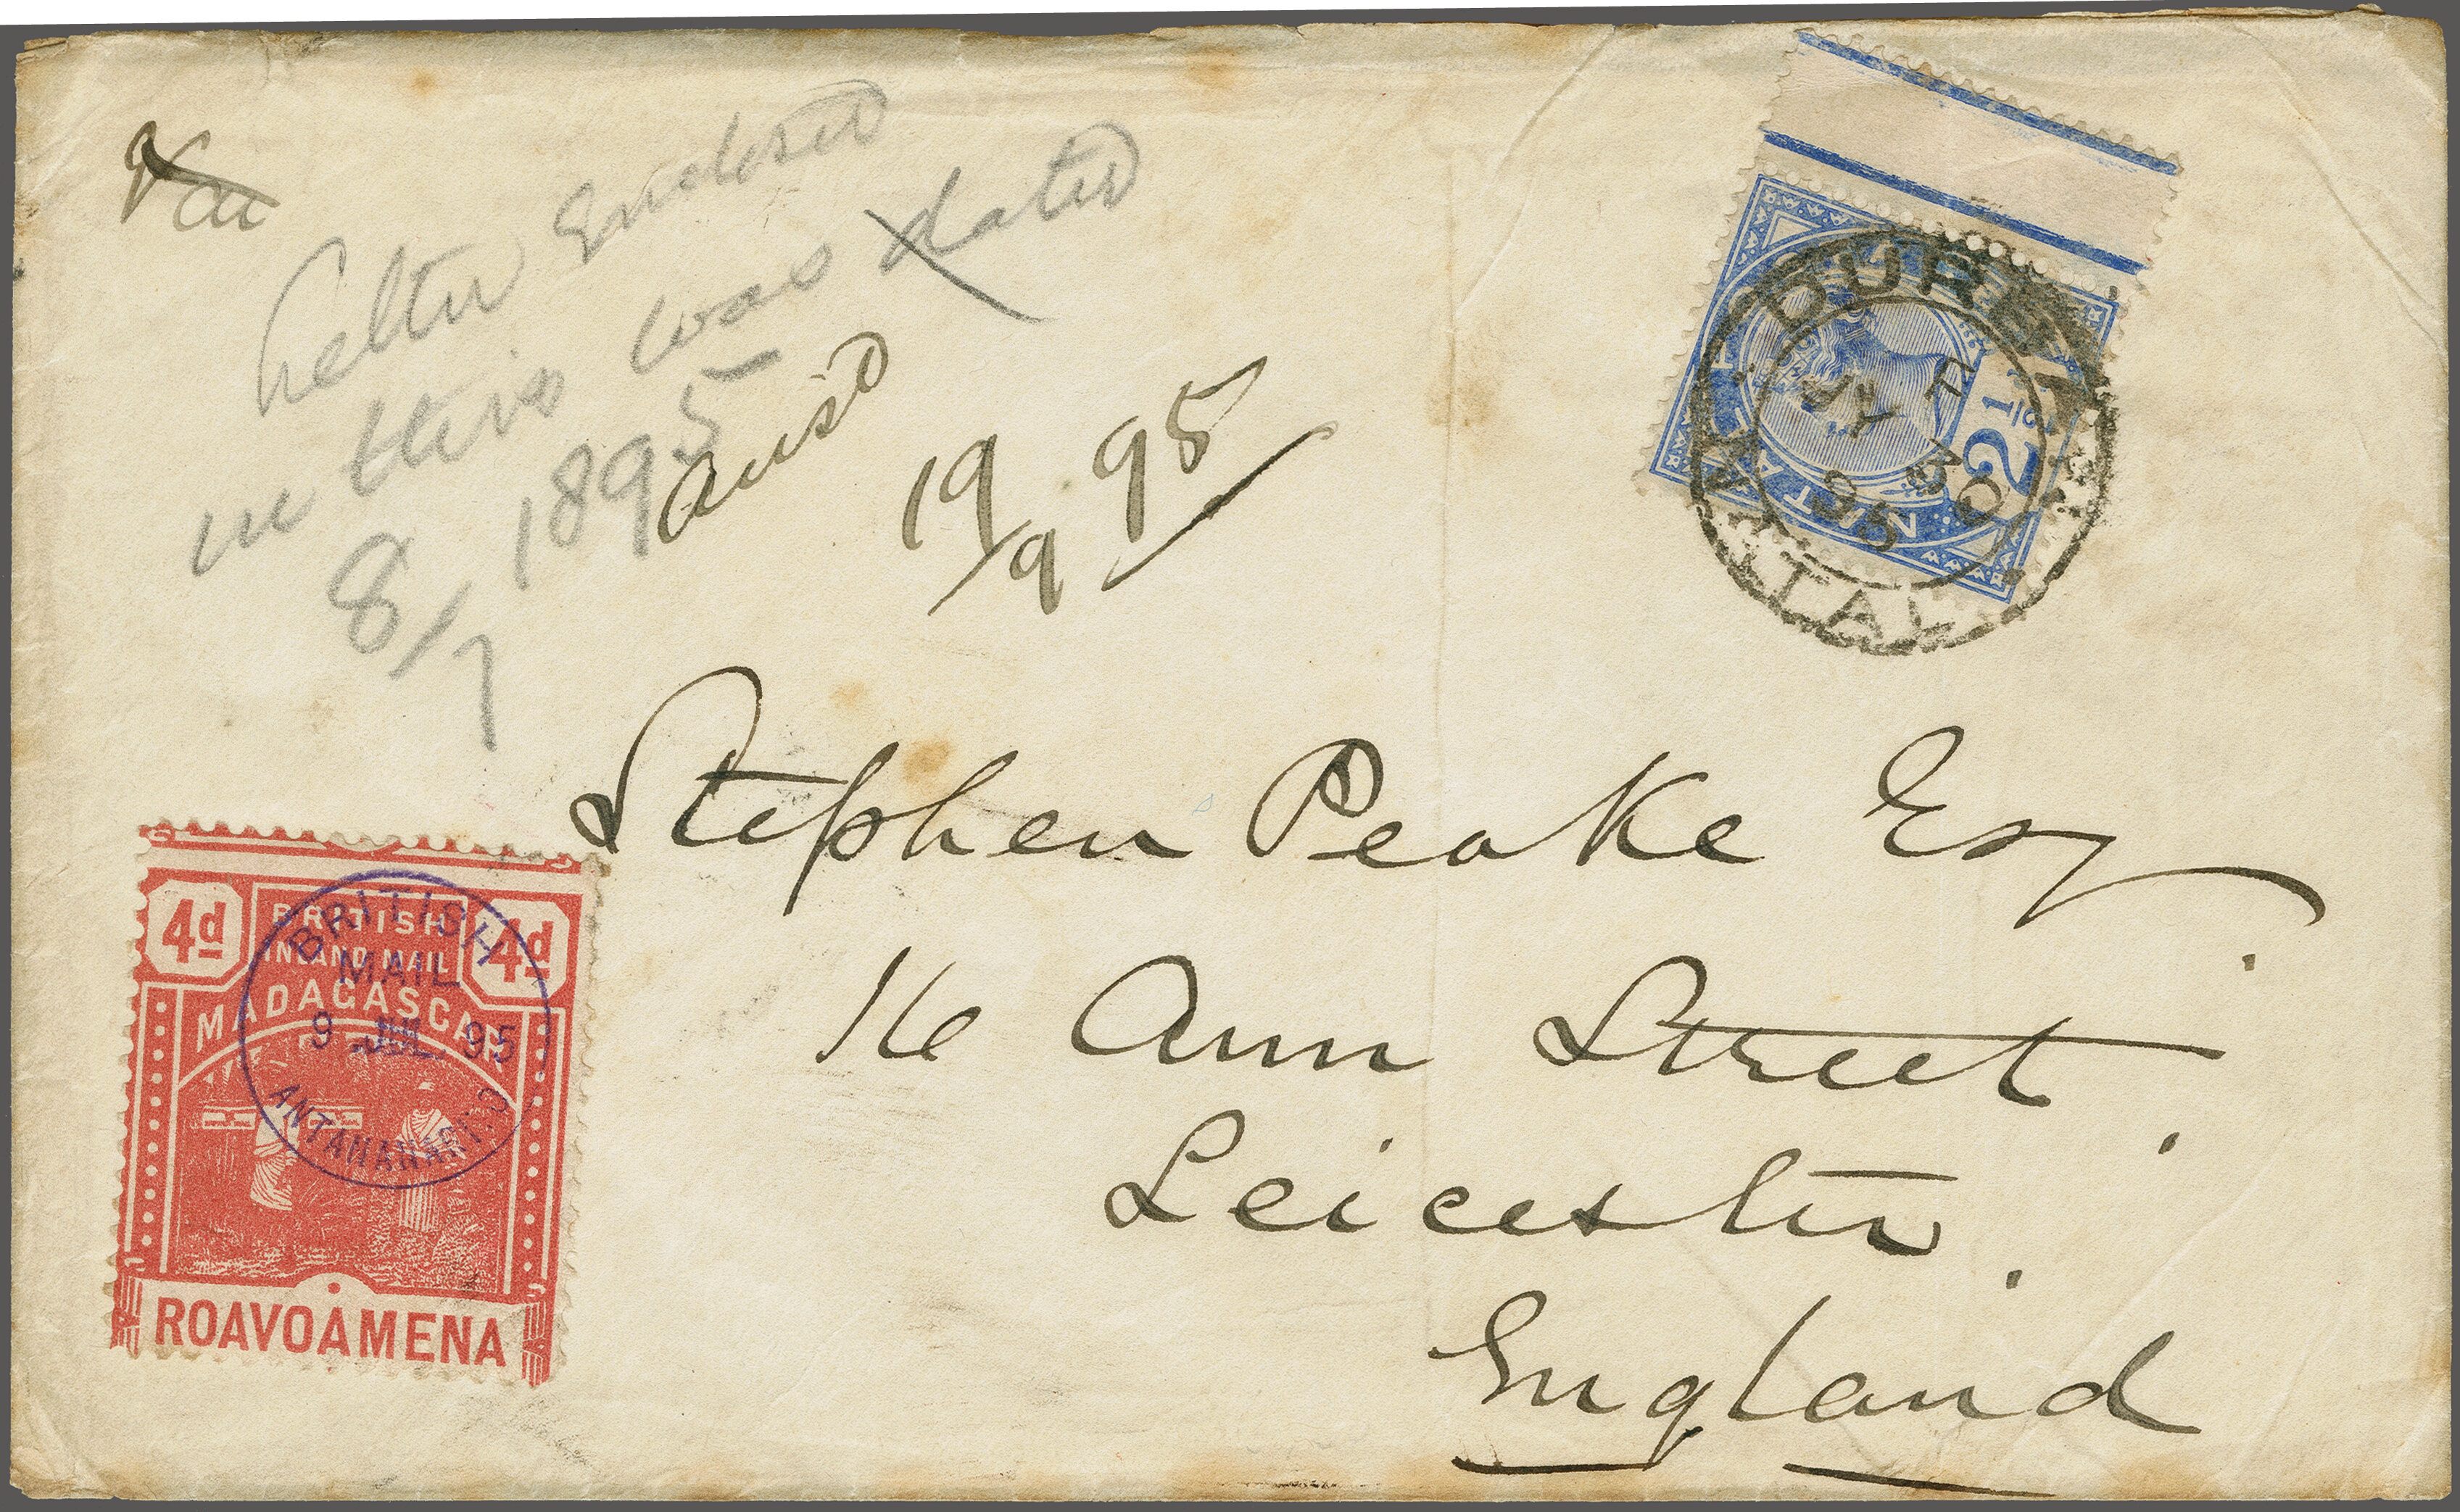 letter enclosed
in this was dated
8/7 1895
19/9 95
DURBAN
JY 30
95
NATAL
2½
NATAL
Stephen Peake Esq.
16 Ann Street,
Leicester.
England
4d BRITISH 4d
INLAND MAIL
MADAGASCAR
ROAVOAMENA
BRITISH
MAIL
9 JUL 95
ANTANANARIVO